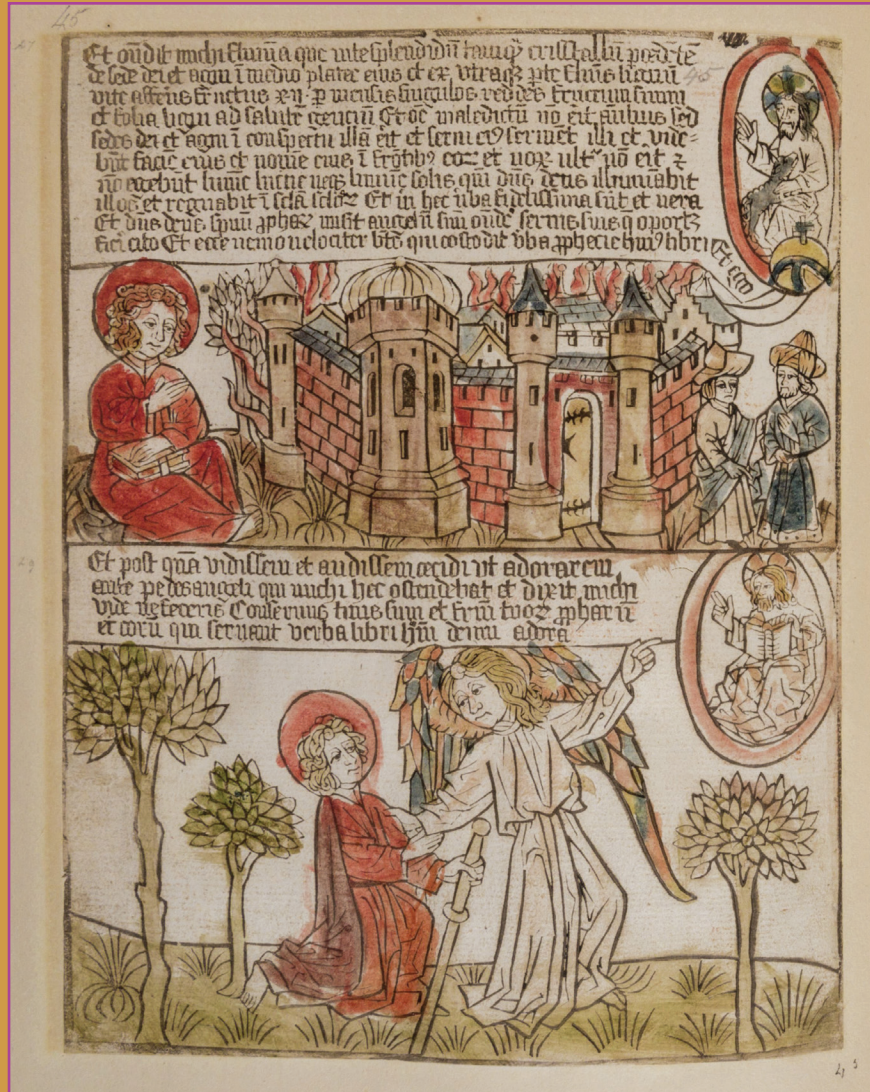 45
Et oñdit michi fluviũa que vite splendidũ tamq̃ cristallũ p̃cedẽtẽ
de sede dei et agni ĩ medio platee eius et ex vtraq̃ p̃te flum̃s lignũ
45
vite afferẽs fructus xij p̃ menses singulos reddẽs fructum suum
et folia ligni ad salutẽ gencĩũ Et oẽ maledictũ nõ erit amplius sed
sedes dei et agni ĩ conspectu illã erit et servi ei9 servient illi et vide-
bũt faciẽ eius et nomẽ eius ĩ frõtib9 eoꝝ et nox ultᵃ nõ erit ⁊
nõ egebũt lumĩe lucerne neq̃ lumĩe solis qui dñs deus illuminabit
illos et regnabit ĩ scl̃a scl̃oꝝ Et ĩ hec v̓ba fidelissima sũt et vera
Et dñs deus spirituũ ꝓphaꝝ misit angelũ suũ oñdẽ servis suis q̃ oportꝫ
fieri cito Et ecce venio velociter bt̃s qui costodit v̓ba ꝓphecie hui9 libri
Et ecce
Et post quã vidissem et audissem cecidi vt adorarem
ante pedes angeli qui michi hec ostendebat et dixit michi
vide ne feceris Conservus tuus sum et fr̃m tuoꝝ ꝓpharũ
et eorũ qui servant verba libri hui9 deum adora
43